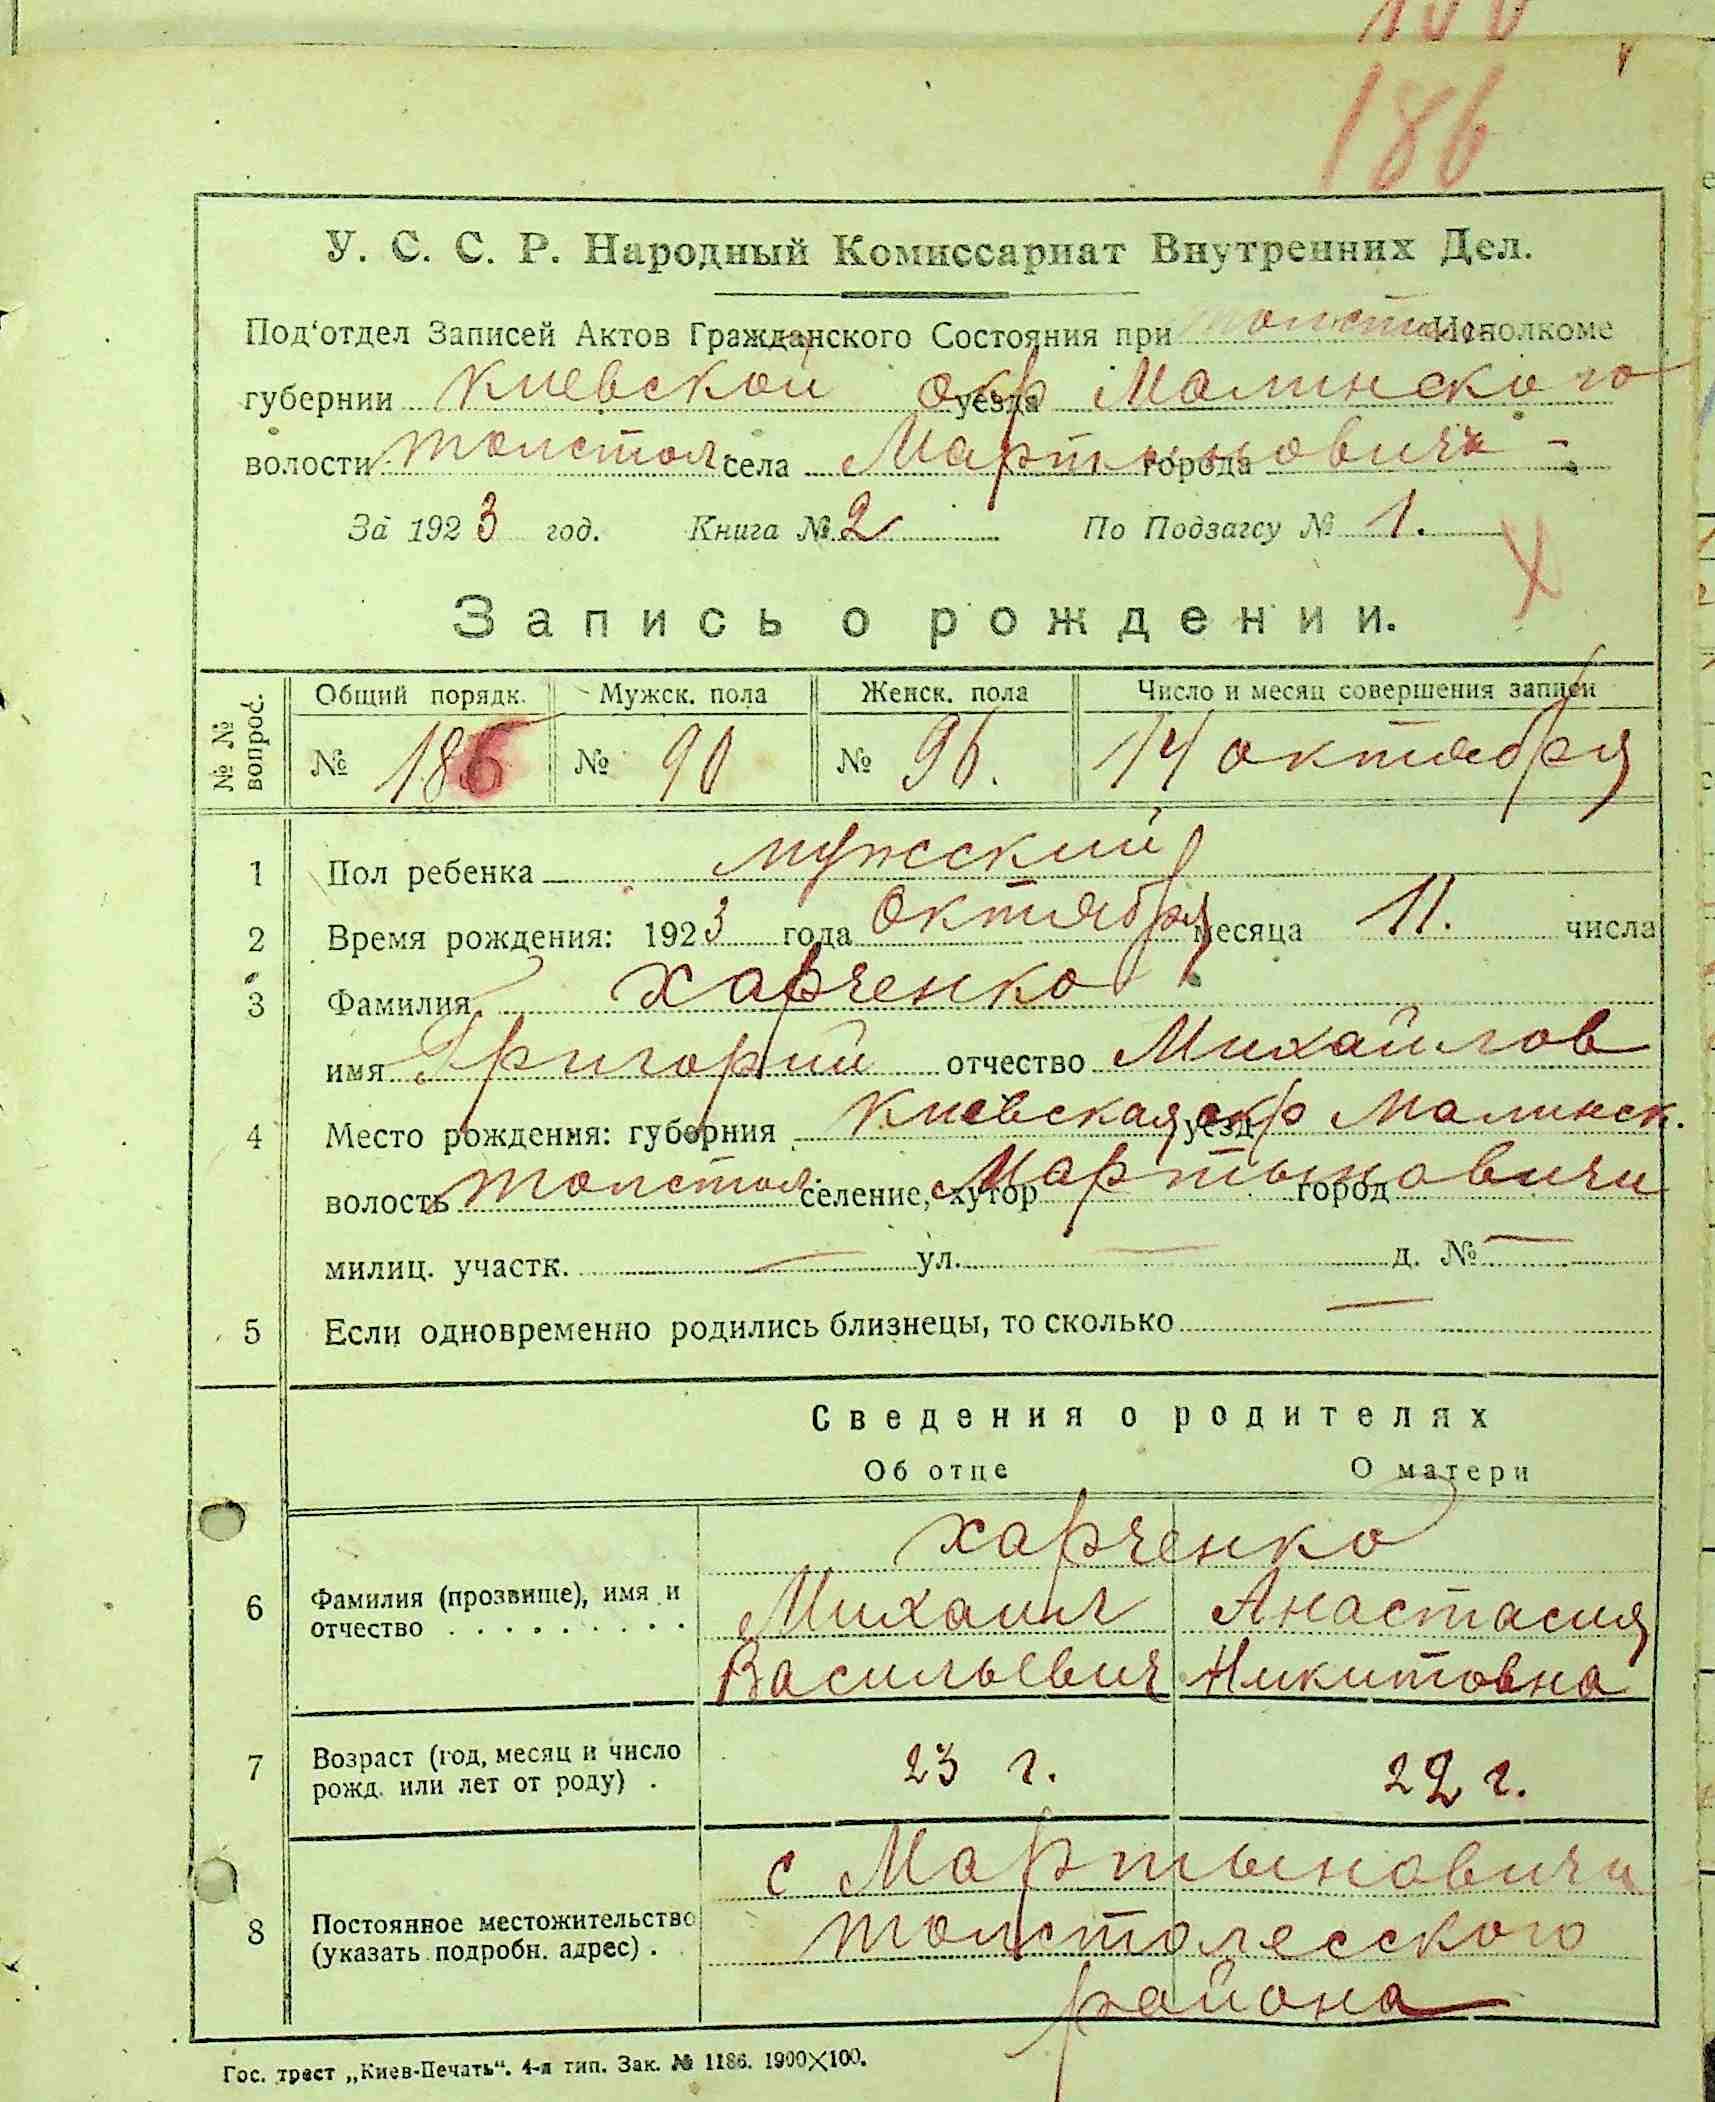 186
У. С. С. Р. Народный Комиссариат Внутренних Дел.
Под'отдел Записей Актов Гражданского Состояния при Толстол. Исполкоме
губернии Киевской окр уезда Малинского
волости Толстол. села Мартыновичи города -
За 1923 год. Книга № 2 По Подзагсу № 1.
X
Запись о рождении.
№ № вопрос. Общий порядк. Мужск. пола Женск. пола Число и месяц совершения записи
№ 186 № 90 № 96. 14 октября
1 Пол ребенка мужской
2 Время рождения: 1923 года Октября месяца 11. числа
3 Фамилия Харченко
имя Григорий отчество Михайлов
4 Место рождения: губерния Киевская уезд окр Малинск.
волость Толстол. селение, хутор с Мартыновичи город
милиц. участк. — ул. — д. № —
5 Если одновременно родились близнецы, то сколько —
Сведения о родителях
Об отце О матери
Харченко
6 Фамилия (прозвище), имя и Михаил Анастасия
отчество . . . . . . . . . . Васильевич Никитовна
7 Возраст (год, месяц и число 23 г. 22 г.
рожд. или лет от роду) .
с Мартыновичи
8 Постоянное местожительство Толстолесского
(указать подробн. адрес) . района
Гос. трест „Киев-Печать“. 4-я тип. Зак. № 1186. 1900×100.